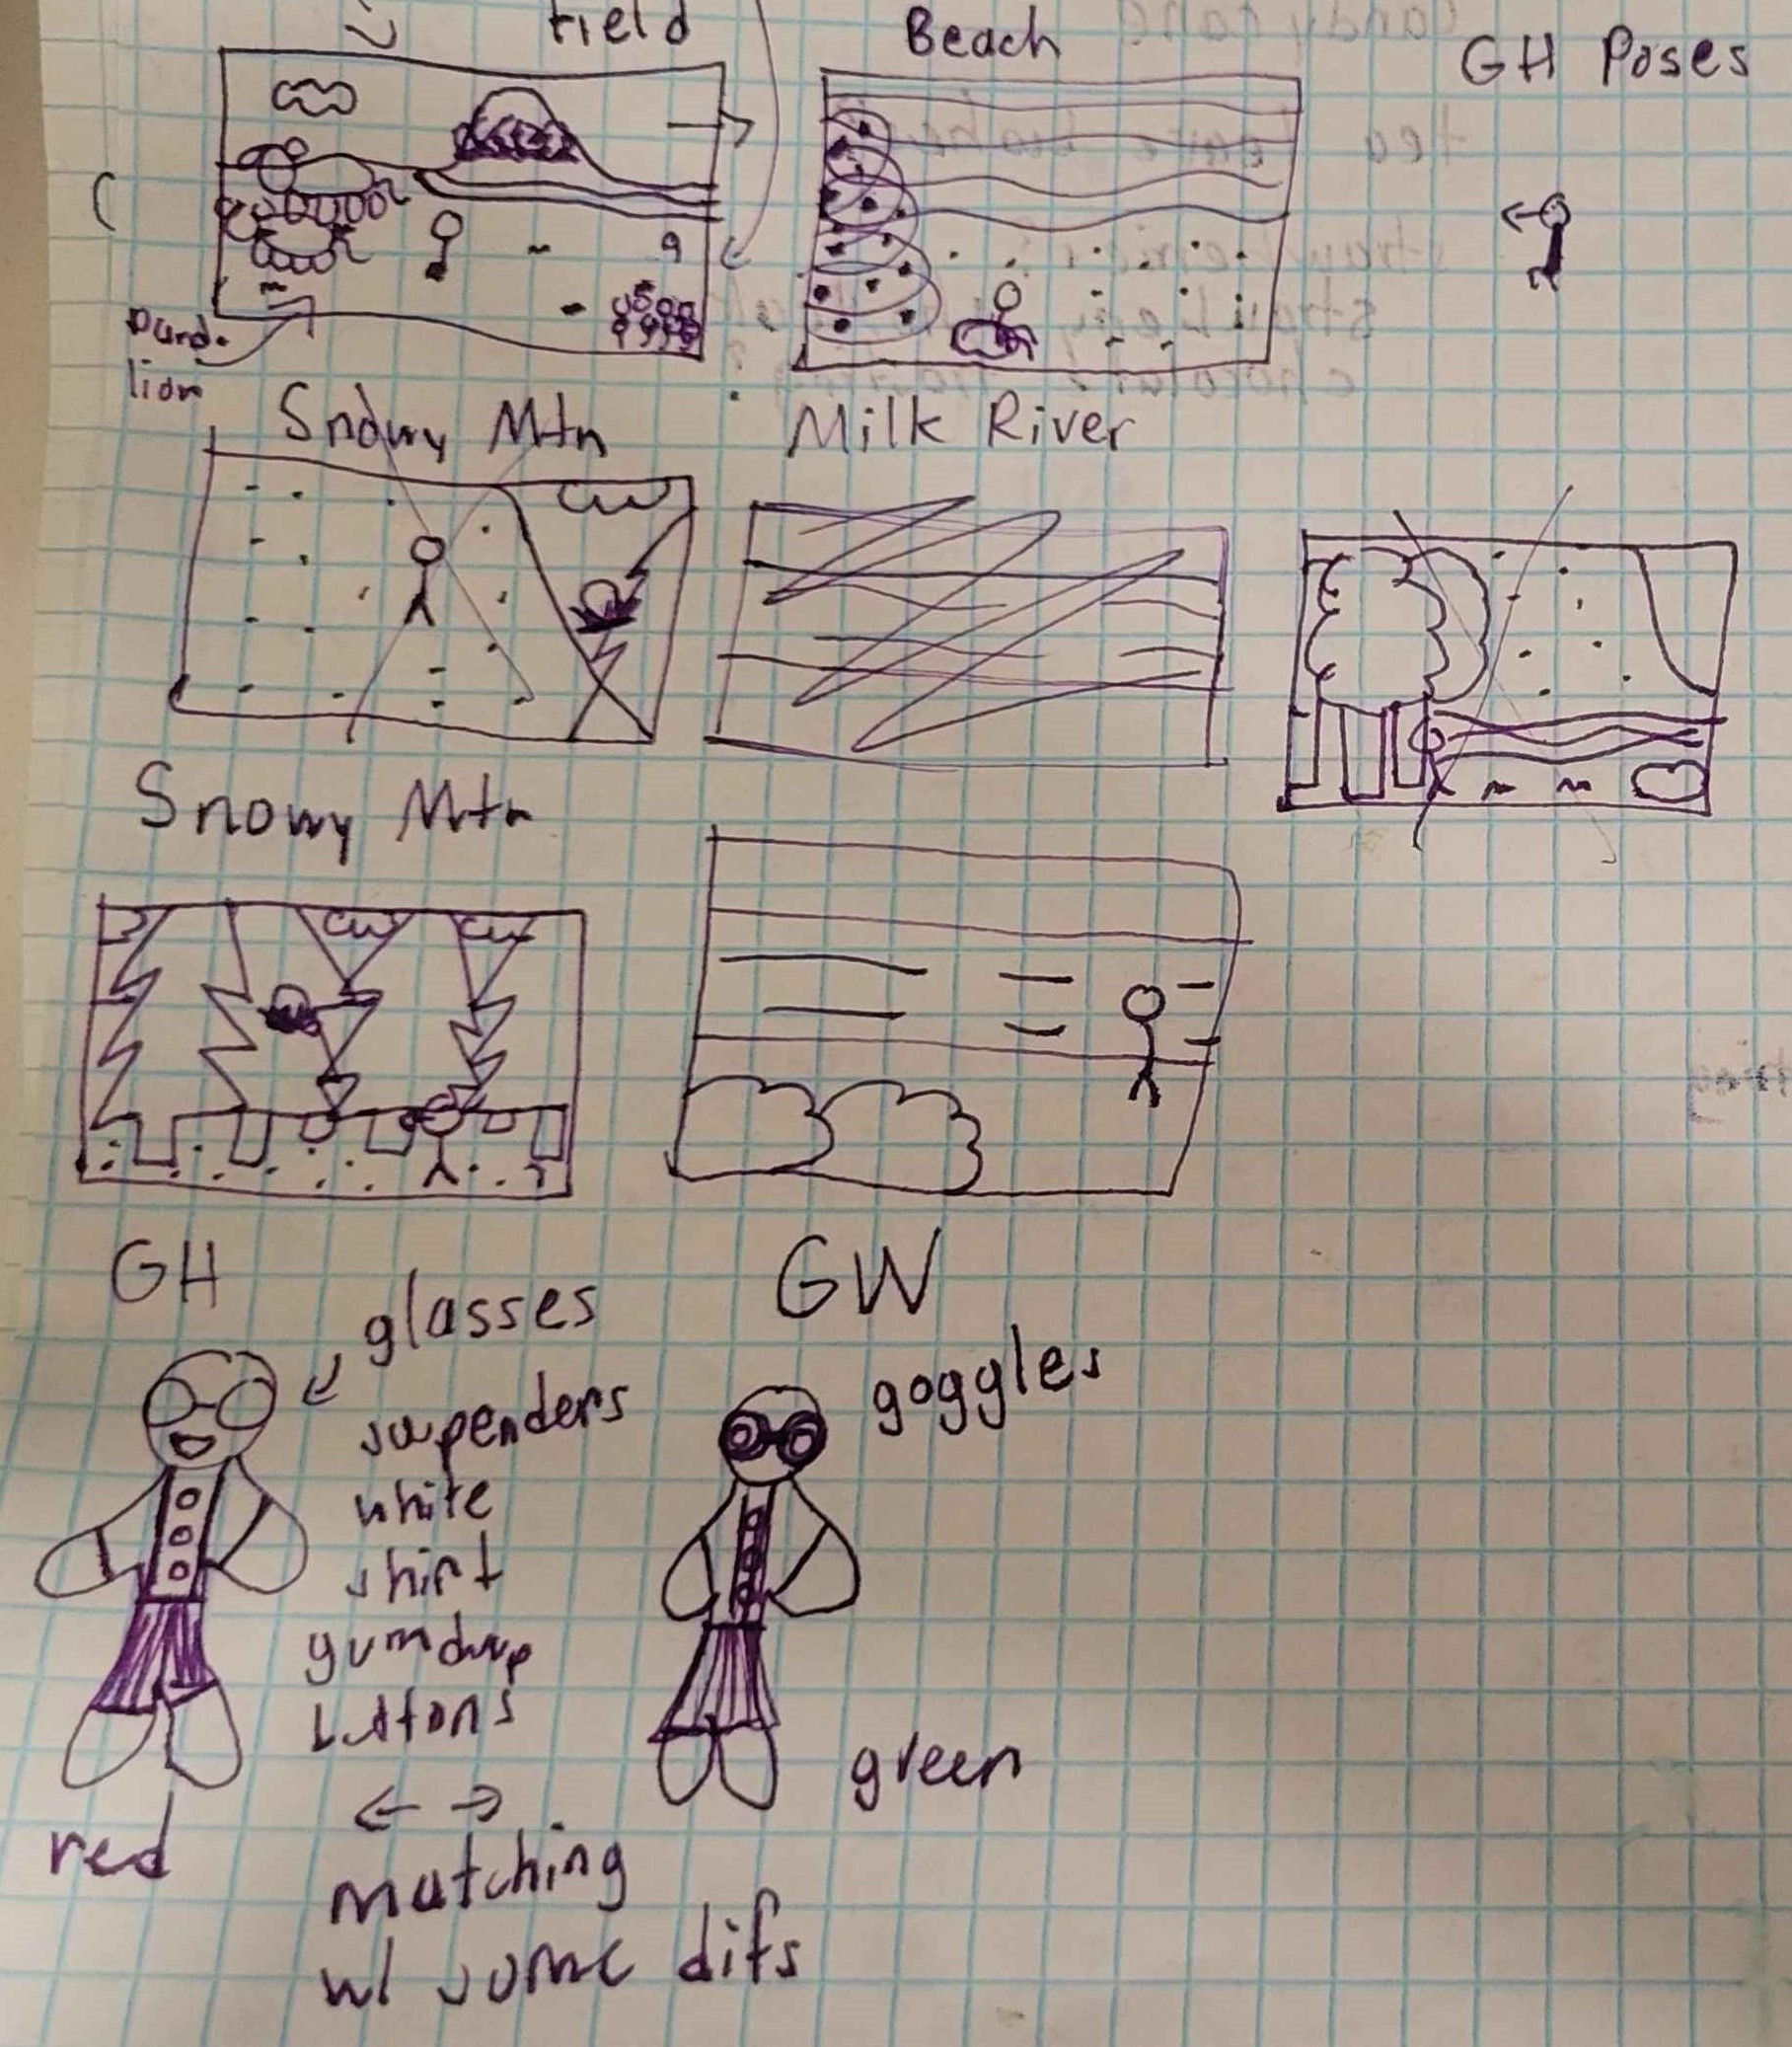 Field
Beach
GH Poses
Dand.
lion
Snowy Mtn
Milk River
Snowy Mtn
GH
GW
glasses
goggles
suspenders
white
shirt
gumdrop
buttons
green
red
matching
w/ some difs